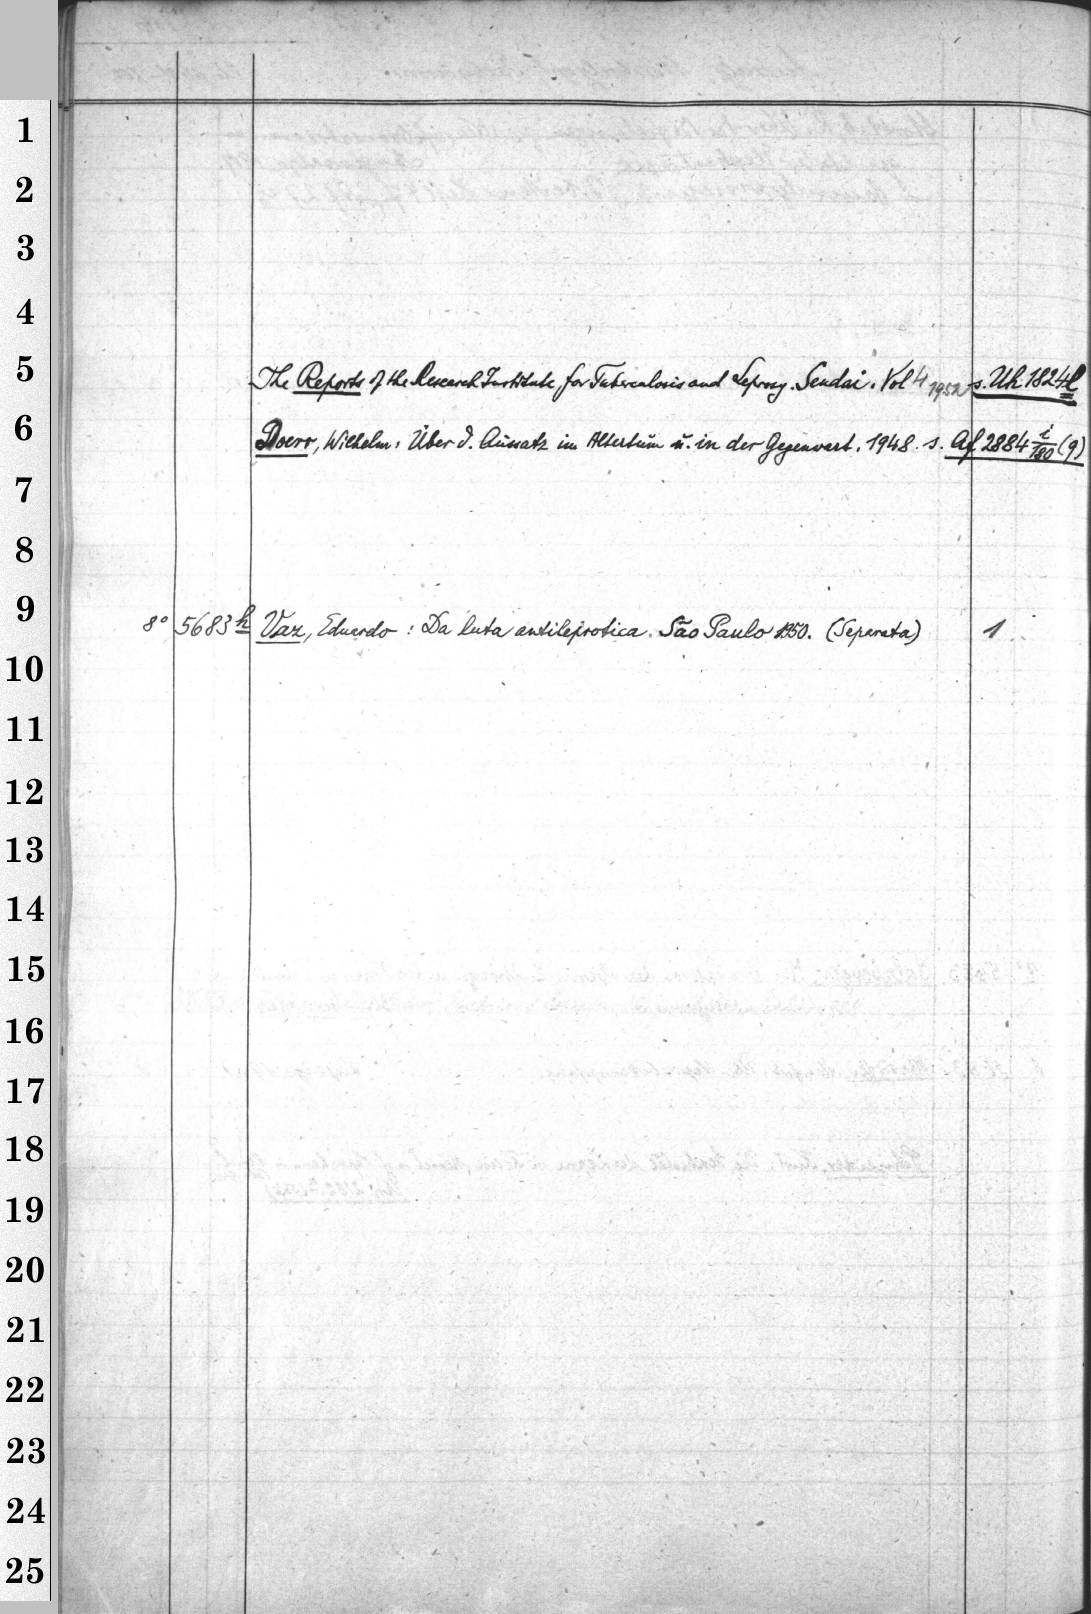 1
2
3
4
5
The Reports of the Research Institute for Tuberculosis and Leprosy. Sendai. Vol 4 1952 s. Uk 1824 l
6
Doerr, Wilhelm: Über d. Aussatz im Altertum u. in der Gegenwart. 1948. s. Af 2884 i/180 (9)
7
8
9
8° 5683 h Vaz, Eduardo: Da luta antileprotica. São Paulo 1950. (Separata) 1
10
11
12
13
14
15
16
17
18
19
20
21
22
23
24
25